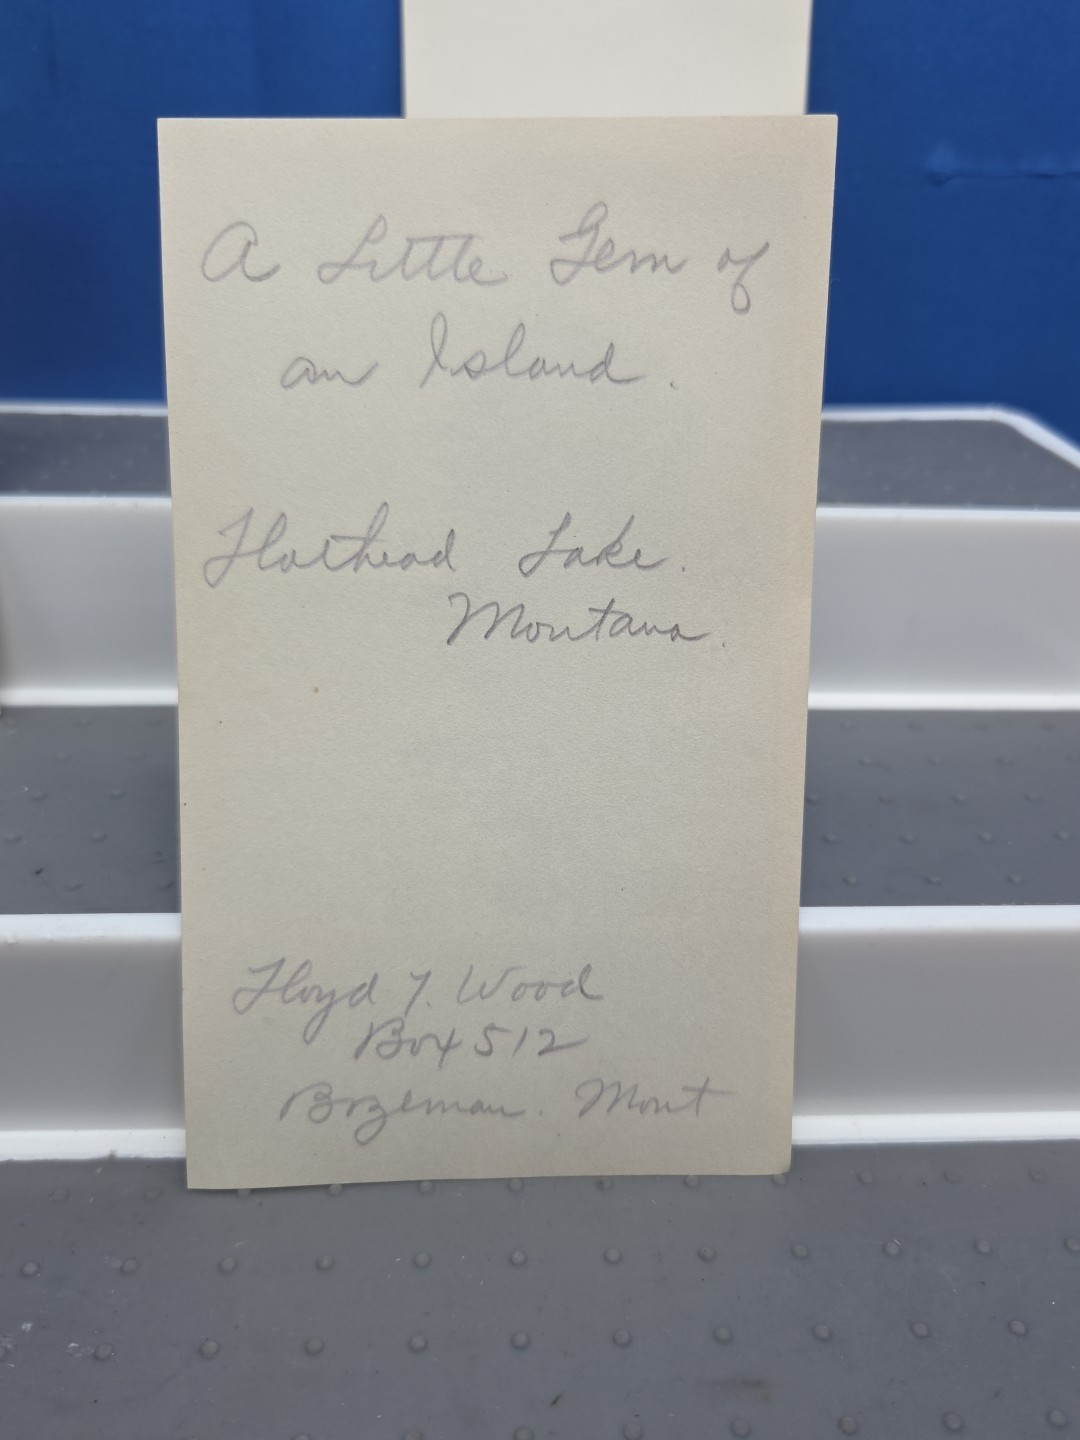 A Little Gem of
an Island.
Flathead Lake.
Montana.
Floyd T. Wood
Box 512
Bozeman. Mont